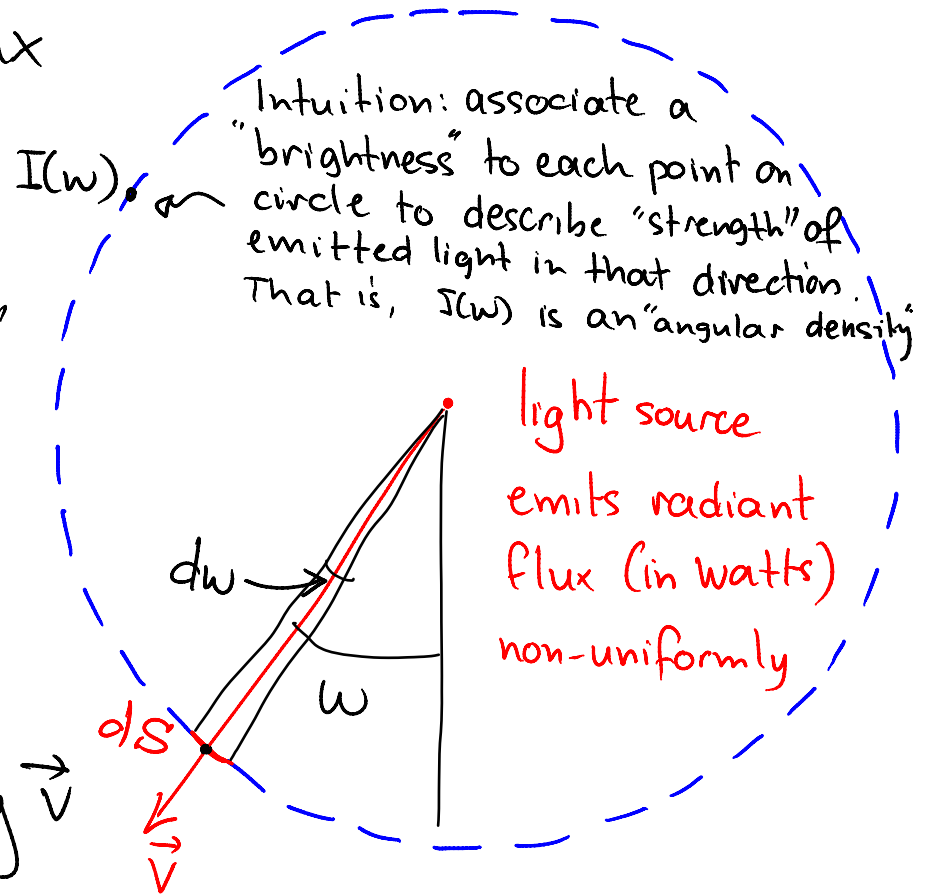 Intuition: associate a
"brightness" to each point on
circle to describe "strength" of
emitted light in that direction.
That is, I(w) is an "angular density"
I(w)
light source
emits radiant
flux (in watts)
non-uniformly
dw
w
ds
v
v